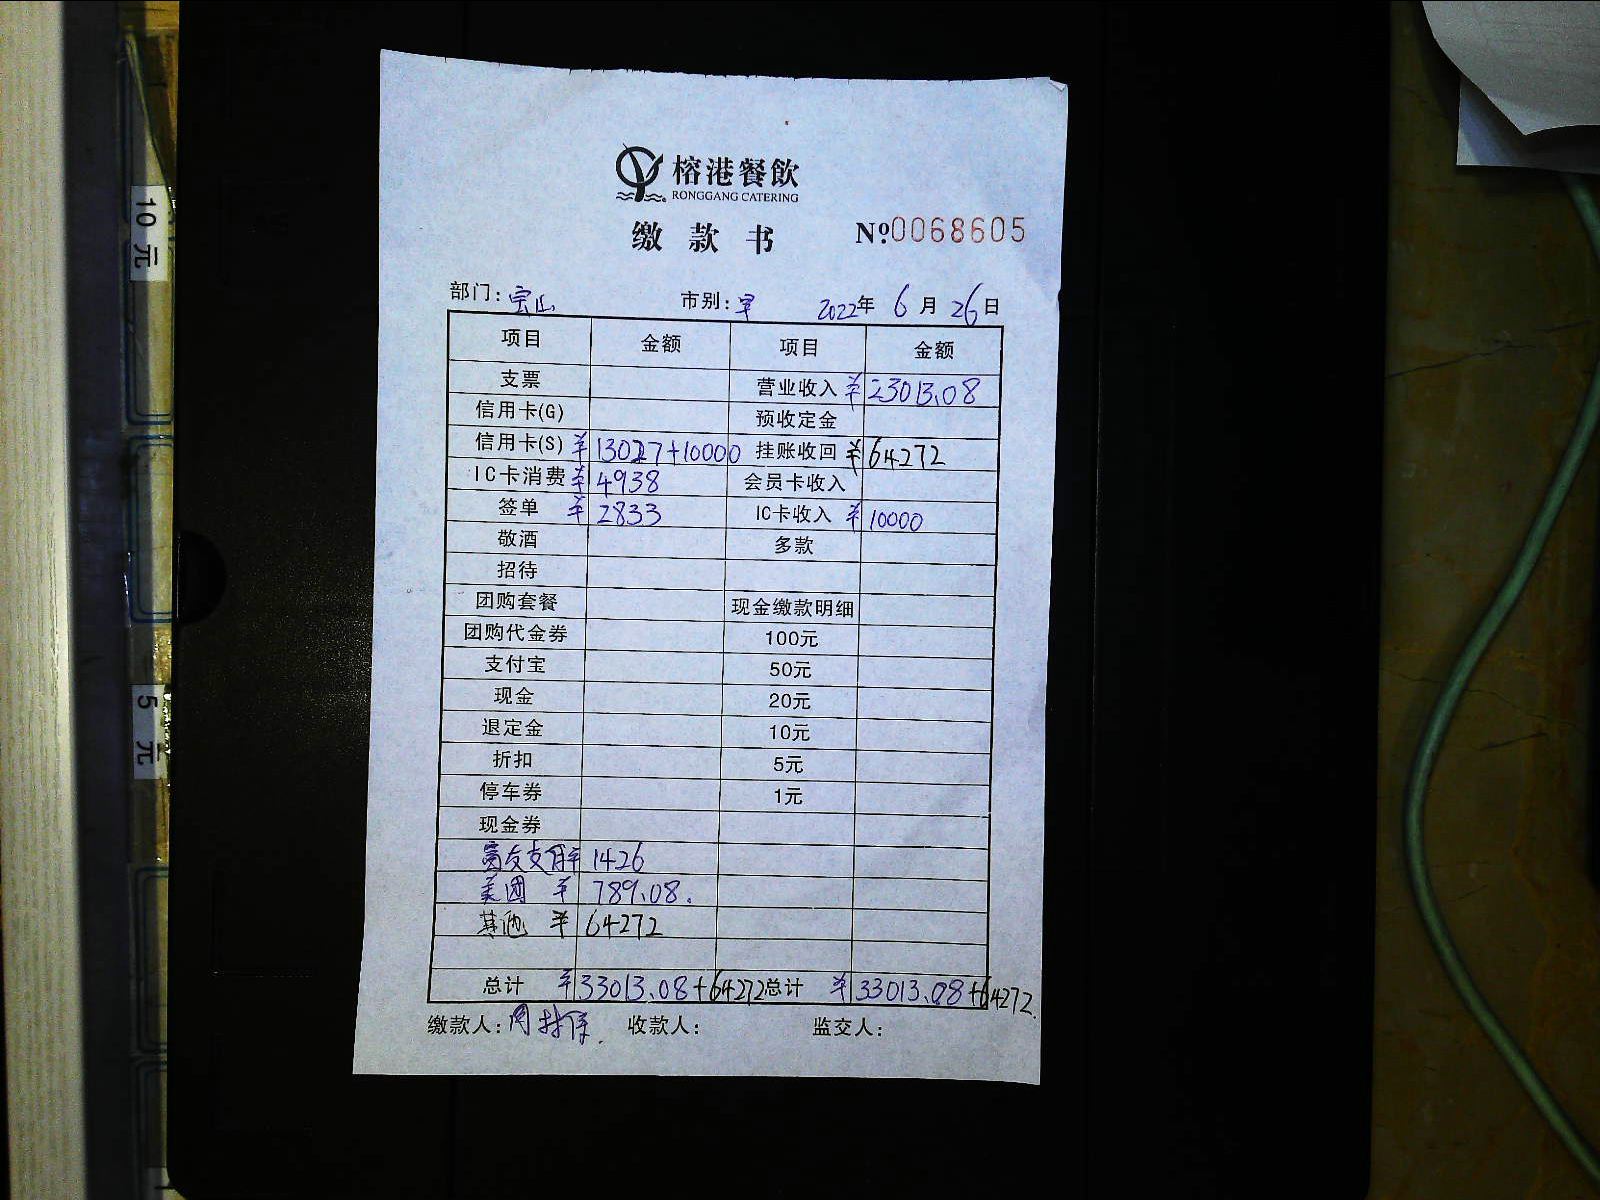 榕港餐飲
RONGGANG CATERING
缴款书 №0068605
部门：宝山 市别：早 2022年6月26日
项目 金额 项目 金额
支票 营业收入 ¥23013.08
信用卡(G) 预收定金
信用卡(S) ¥13027+10000 挂账收回 ¥64272
IC卡消费 ¥4938 会员卡收入
签单 ¥2833 IC卡收入 ¥10000
敬酒 多款
招待
团购套餐 现金缴款明细
团购代金券 100元
支付宝 50元
现金 20元
退定金 10元
折扣 5元
停车券 1元
现金券
富友支付¥ 1426
美团 ¥789.08.
其他 ¥64272
总计 ¥33013.08+64272 总计 ¥33013.08+64272.
缴款人：周 收款人： 监交人：
10元
5元